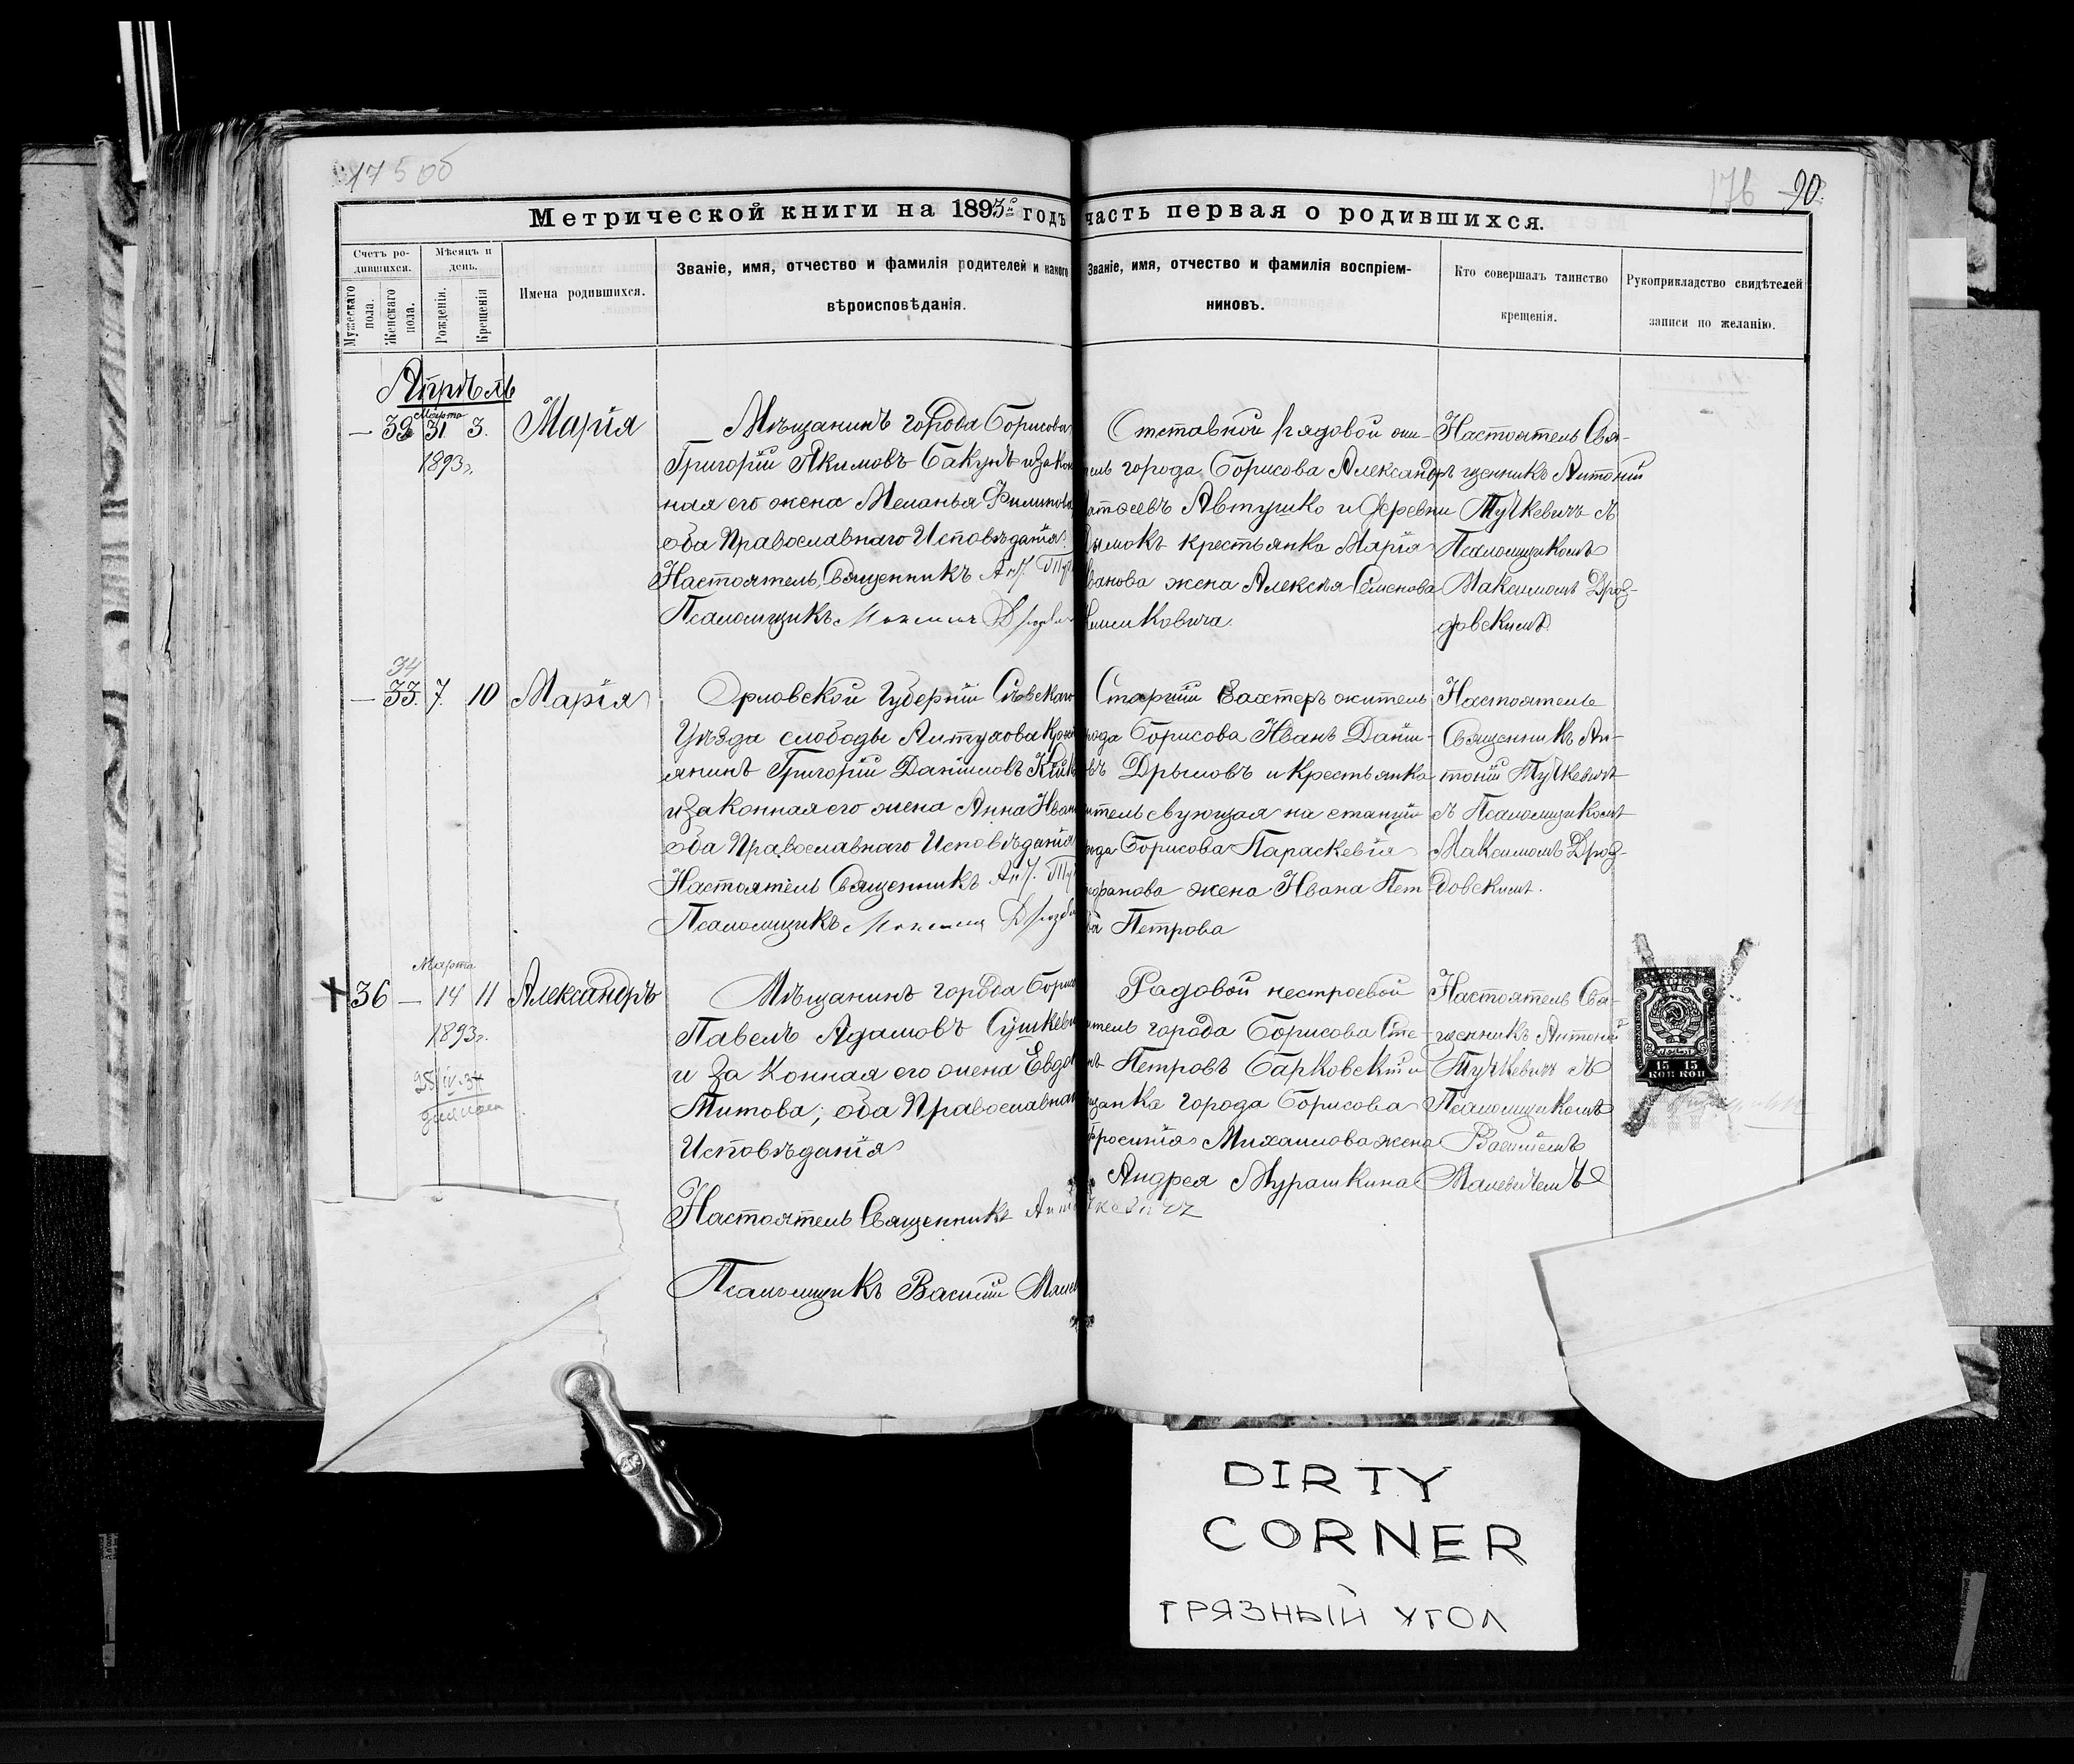 175 об
176 90.
Метрической книги на 1893й годъ часть первая о родившихся.
Счетъ ро-
дившихся.
Мужескаго
пола.
Женскаго
пола.
Мѣсяцъ и
день.
Рожденія.
Крещенія
Имена родившихся.
Званіе, имя, отчество и фамилія родителей и какого
вѣроисповѣданія.
Званіе, имя, отчество и фамилія воспріем-
никовъ.
Кто совершалъ таинство
крещенія.
Рукоприкладство свидѣтелей
записи по желанію.
Апрѣль
Марта
— 31 3.
1893г.
Марія
Мѣщанинъ города Борисова
Григорій Якимовъ Бакунъ и закон
ная его жена Меланья Филипова
оба Православнаго Исповѣданія.
Настоятель Священникъ Ант. Ту
Псаломщикъ Максимъ Дроздов
Отставной рядовой жи-
тель города Борисова Александръ
Автушко и деревни
крестьянка Марія
Иванова жена Алексѣя Семенова
Климковича.
Настоятель Свя-
щенникъ Антоній
Тучкевичъ съ
Псаломщикомъ
Максимомъ Дроз-
довскимъ.
34
— 33. 7. 10
Марія
Орловской Губерніи Сѣвскаго
Уѣзда слободы
янинъ Григорій Даніиловъ
и законная его жена Анна Иван
оба Православнаго Исповѣданія
Настоятель Священникъ Ант. Ту
Псаломщикъ Максимъ Дроздов
Старшій Вахтеръ житель
города Борисова Иванъ Даніи-
овъ Дрымовъ и крестьянка
жительсвующая на станціи
города Борисова Параскевія
жена Ивана Пет
Петрова
Настоятель
Священникъ Ан-
тоній Тучкевичъ
съ Псаломщикомъ
Максимомъ Дроз-
довскимъ.
Марта
36 — 14 11
1893г.
Александръ
Мѣщанинъ города Борис
Павелъ Адамовъ Сушкеви
и законная его жена Евдо
Титова; оба Православнаг
Исповѣданія
Настоятель Священникъ Ант
Псаломщикъ Василій Мале
Рядовой нестроевой
житель города Борисова Сте-
Петровъ Барковскій и
щанка города Борисова
фросинія Михаилова жена
Андрея Мурашкина
кевичъ
Настоятель Свя-
щенникъ Антоній
Тучкевичъ съ
Псаломщикомъ
Василіемъ
Малевичемъ
15 15
КОП КОП
DIRTY
CORNER
ГРЯЗНЫЙ УГОЛ